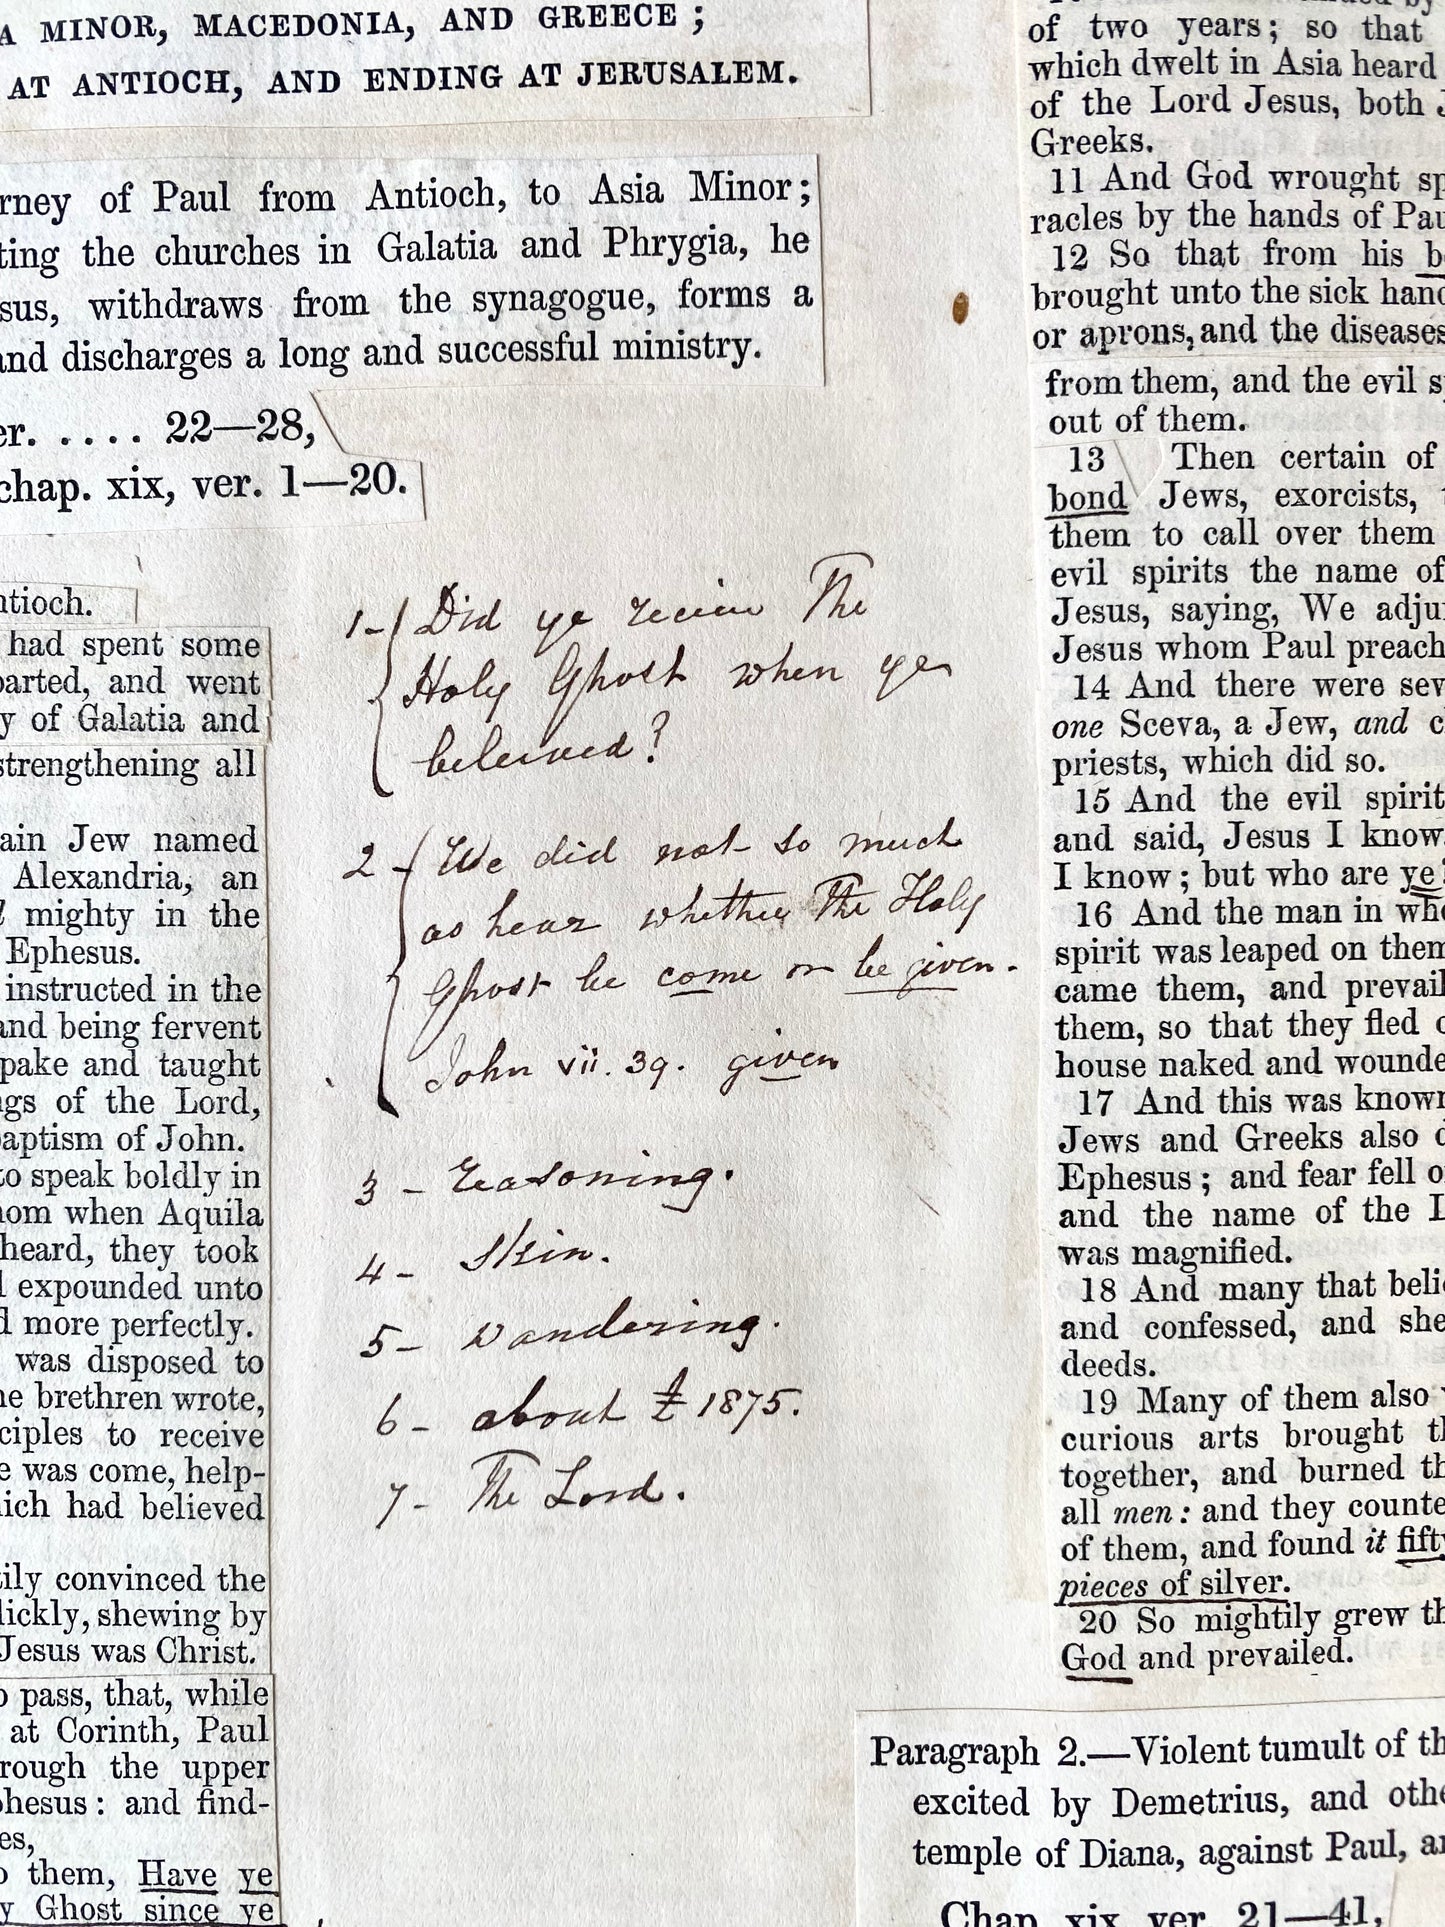 A MINOR, MACEDONIA, AND GREECE ;
AT ANTIOCH, AND ENDING AT JERUSALEM.
rney of Paul from Antioch, to Asia Minor;
ting the churches in Galatia and Phrygia, he
sus, withdraws from the synagogue, forms a
and discharges a long and successful ministry.
er. .... 22—28,
chap. xix, ver. 1—20.
ntioch.
had spent some
parted, and went
y of Galatia and
strengthening all
ain Jew named
Alexandria, an
mighty in the
Ephesus.
instructed in the
and being fervent
pake and taught
gs of the Lord,
baptism of John.
to speak boldly in
hom when Aquila
heard, they took
l expounded unto
d more perfectly.
was disposed to
he brethren wrote,
ciples to receive
e was come, help-
hich had believed
tily convinced the
lickly, shewing by
Jesus was Christ.
o pass, that, while
at Corinth, Paul
rough the upper
phesus: and find-
es,
o them, Have ye
y Ghost since ye
1- Did ye receive The
Holy Ghost when ye
beleived?
2- We did not so much
as hear whether The Holy
Ghost be come or be given.
John vii. 39. given
3 - reasoning.
4 - Skin.
5 - wandering.
6 - about £ 1875.
7 - The Lord.
of two years; so that
which dwelt in Asia heard
of the Lord Jesus, both J
Greeks.
11 And God wrought sp
racles by the hands of Pau
12 So that from his b
brought unto the sick hand
or aprons, and the diseases
from them, and the evil s
out of them.
13 Then certain of
bond Jews, exorcists, t
them to call over them
evil spirits the name of
Jesus, saying, We adju
Jesus whom Paul preach
14 And there were sev
one Sceva, a Jew, and c
priests, which did so.
15 And the evil spirit
and said, Jesus I know
I know; but who are ye?
16 And the man in who
spirit was leaped on them
came them, and prevail
them, so that they fled o
house naked and wounde
17 And this was known
Jews and Greeks also d
Ephesus; and fear fell o
and the name of the L
was magnified.
18 And many that belie
and confessed, and she
deeds.
19 Many of them also
curious arts brought th
together, and burned th
all men: and they counte
of them, and found it fifty
pieces of silver.
20 So mightily grew th
God and prevailed.
Paragraph 2.—Violent tumult of th
excited by Demetrius, and othe
temple of Diana, against Paul, an
Chap. xix ver 21—41.